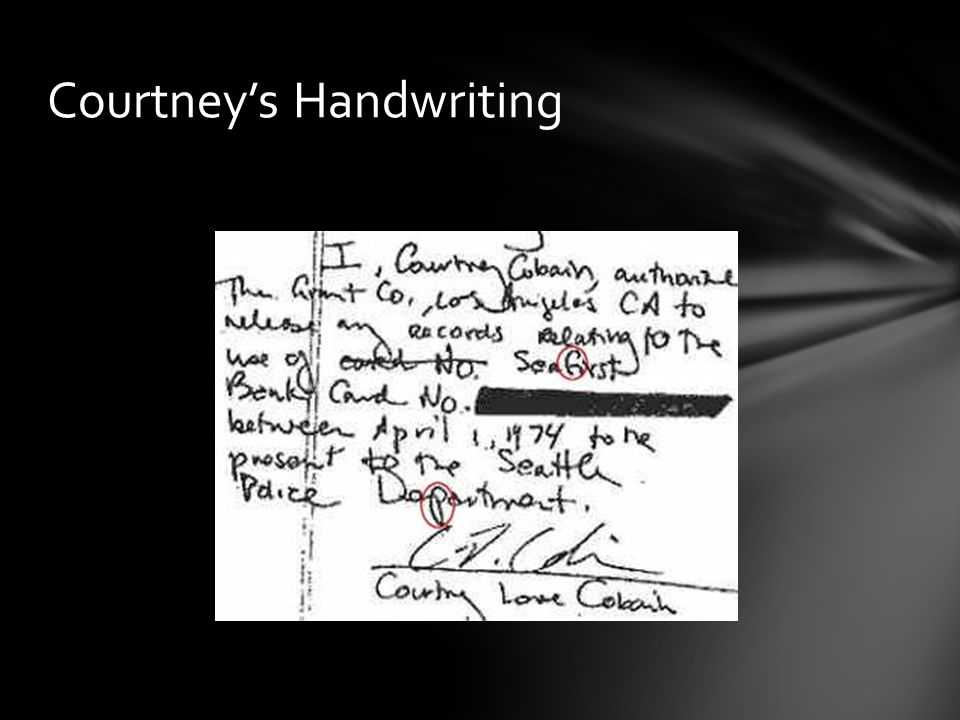 Courtney's Handwriting
I, Courtney Cobain, authorize
The Grant Co., Los Angeles CA to
release any Records Relating to the
use of card No. Seafirst
Bank Card No.
between April 1, 1974 to the
present to the Seattle
Police Department.
Courtney Love Cobain